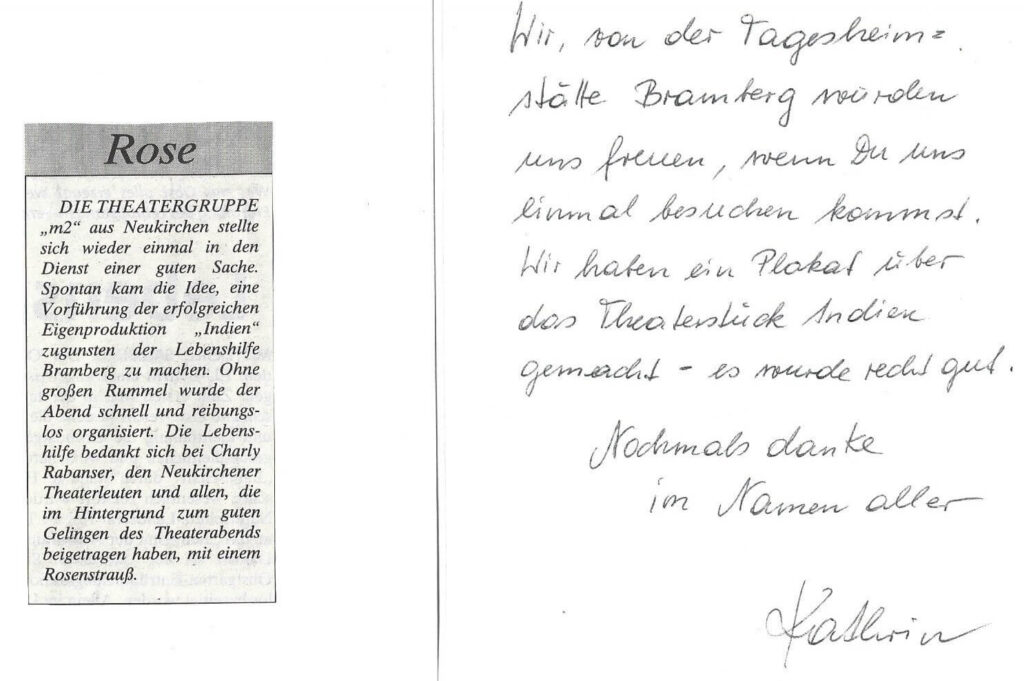 Rose
DIE THEATERGRUPPE
„m2“ aus Neukirchen stellte
sich wieder einmal in den
Dienst einer guten Sache.
Spontan kam die Idee, eine
Vorführung der erfolgreichen
Eigenproduktion „Indien“
zugunsten der Lebenshilfe
Bramberg zu machen. Ohne
großen Rummel wurde der
Abend schnell und reibungs-
los organisiert. Die Lebens-
hilfe bedankt sich bei Charly
Rabanser, den Neukirchener
Theaterleuten und allen, die
im Hintergrund zum guten
Gelingen des Theaterabends
beigetragen haben, mit einem
Rosenstrauß.
Wir, von der Tagesheim=
stätte Bramberg würden
uns freuen, wenn Du uns
einmal besuchen kommst.
Wir haben ein Plakat über
das Theaterstück Indien
gemacht – es wurde recht gut.
Nochmals danke
im Namen aller
Kathrin